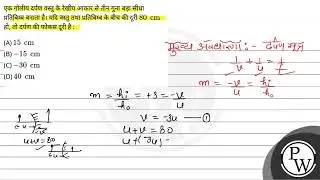 एक गोलीय दर्पण वस्तु के रेखीय आकार से तीन गुना बड़ा सीधा
प्रतिबिम्ब बनाता है। यदि वस्तु तथा प्रतिबिम्ब के बीच की दूरी 80 cm
हो, तो दर्पण की फोकस दूरी है :
(A) 15 cm
(B) -15 cm
(C) -30 cm
(D) 40 cm
मुख्य अवधारणा:- दर्पण सूत्र
1/v + 1/u = 1/f
m = hi/ho = -v/u
m = hi/ho = +3 = -v/u
v = -3u —①
u+v = 80
u+(-3u) =
u+v = 80
PW